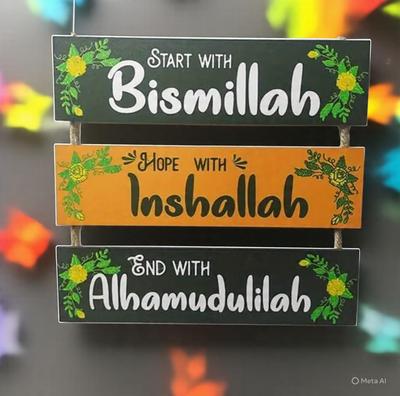 START WITH
Bismillah
HOPE WITH
Inshallah
END WITH
Alhamudulilah
Meta AI